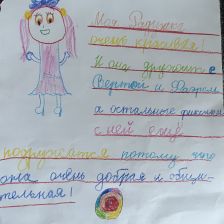 Моя Радуга
очень красивая!
И она дружит с
Верой и
а остальные
с ней ещё
подружатся потому что
она очень добрая и общи-
тельная!